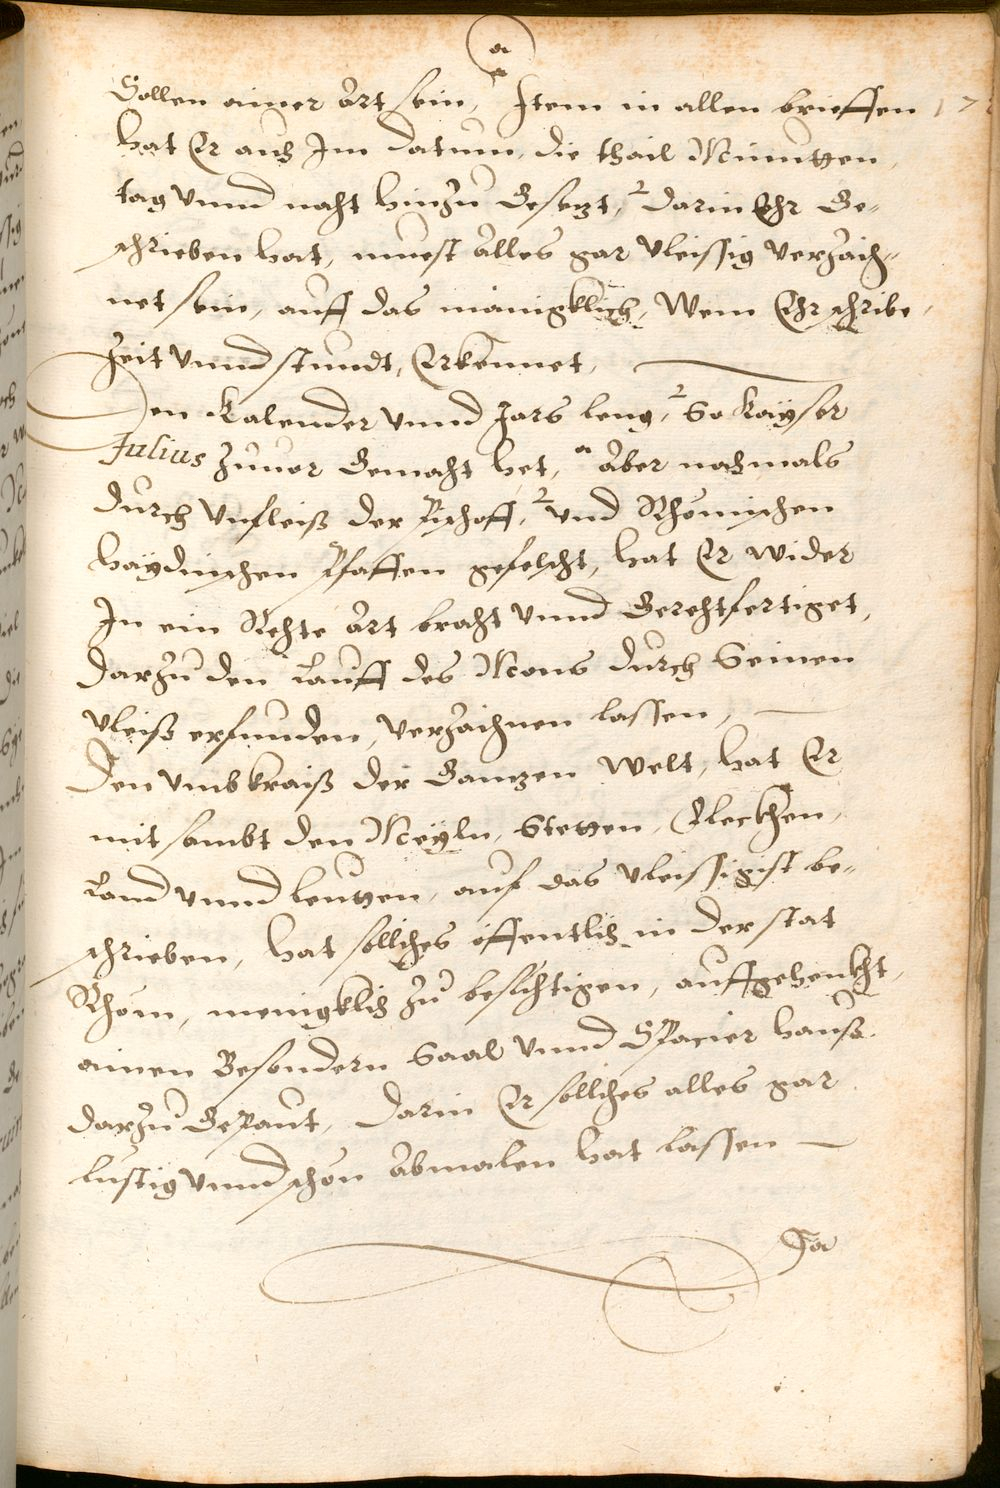 a
Sollen ainer Art sein, Item in allen brieffen
hat Er auch Im datum, die thail Minutten,
tag vnnd nacht hinzu Gesetzt, darin Ehr Ge-
schrieben hat, muest Alles gar vleissig verzaich-
net sein, auff das mänigklich, Wem Ehr schribe,
Zeit vnnd stundt, Erkennet,
Den Kalender vnnd Jars leng, So Kayser
Julius zuuor Gemacht het, Aber nochmals
durch Vnfleiß der Pischoff, vnd Rhömischen
haydnischen Pfaffen gefelscht, hat Er wider
In ein Rechte Art bracht vnnd Gerechtfertiget,
Darzu den Lauff des Mons durch Seinen
vleiß erfunden, verzaichnen lassen,
Den vmbkraiß der Gantzen Welt, hat Er
mit sambt den Meyln, Stetten, Fleckhen,
Land vnnd leutten, auf das vleissigist be-
schrieben, hat sollches öffentlich in der stat
Rhom, menigklich zu besichtigen, auffgehenckht,
ainen Besondern Saal vnnd Spacier hauß
darzu Gepaut, Darin Er sollches alles gar
lustig vnnd schon Abmalen hat lassen